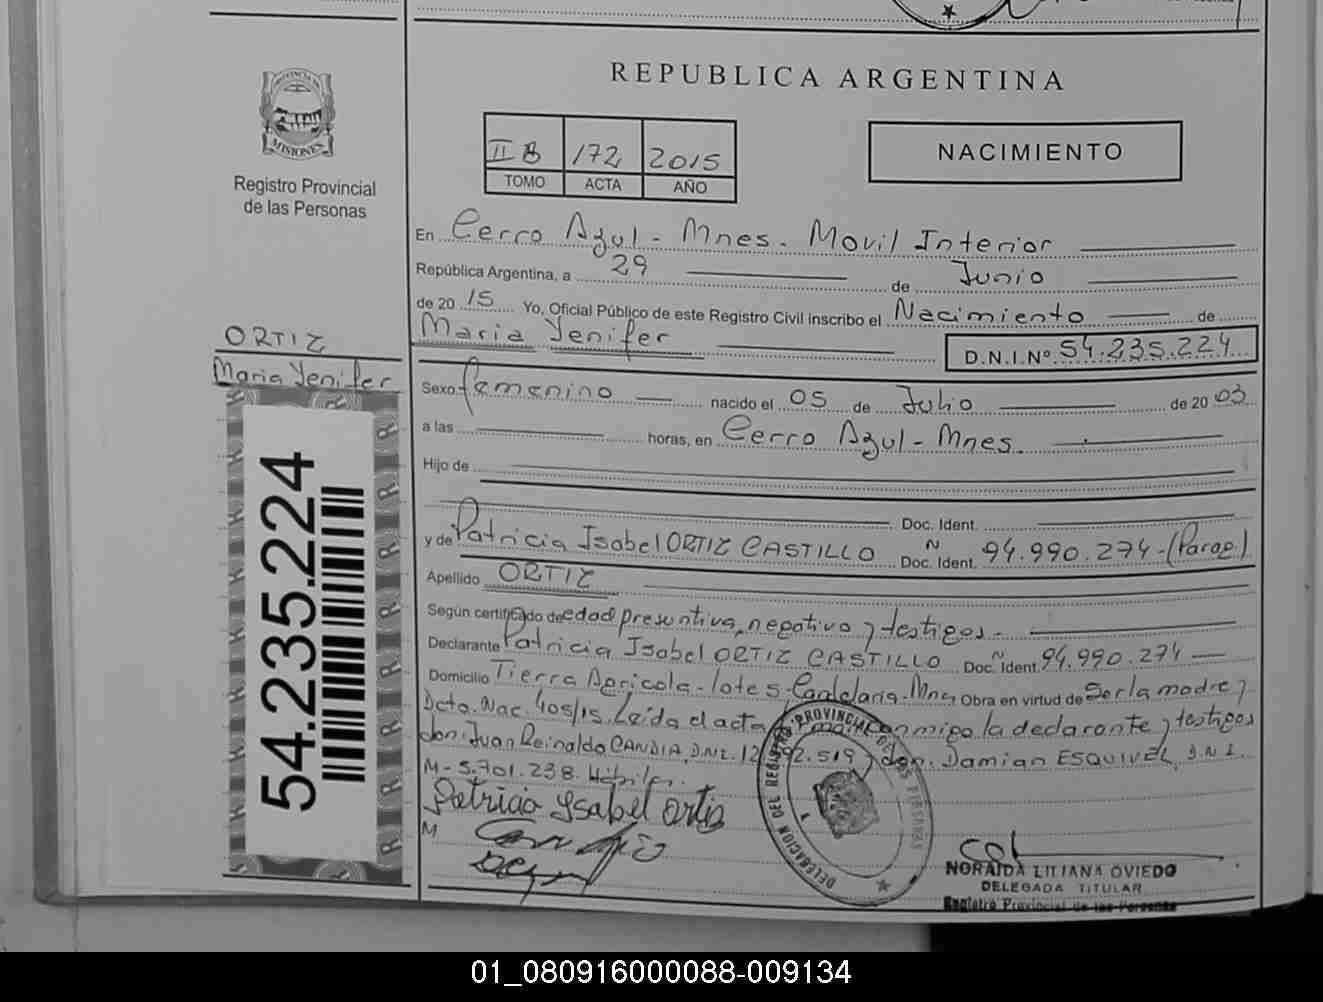 REPUBLICA ARGENTINA
PROVINCIA DE
MISIONES
Registro Provincial
de las Personas
II B 172 2015
TOMO ACTA AÑO
NACIMIENTO
En Cerro Azul - Mnes. Movil Interior
República Argentina, a 29 de Junio
de 20 15 Yo, Oficial Público de este Registro Civil inscribo el Nacimiento de
Maria Yenifer D.N.I.Nº 54.235.224
ORTIZ
Maria Yenifer
54.235.224
Sexo femenino nacido el 05 de Julio de 20 03
a las horas, en Cerro Azul - Mnes.
Hijo de
Doc. Ident.
y de Patricia Isabel ORTIZ CASTILLO Doc. Ident. Nº 94.990.274 - (Parag.)
Apellido ORTIZ
Según certificado de edad presuntiva, negativo y testigos -
Declarante Patricia Isabel ORTIZ CASTILLO Doc. Ident. 94.990.274
Domicilio Tierra Agricola - lote 5 - Candelaria - Mnes Obra en virtud de Ser la madre y
Dcto. Nac. 405/15. Leida el acta conmigo la declarante y testigos
don: Juan Reinaldo CANDIA, DNI. 12 92.519 y don. Damian ESQUIVEL, D.N.I.
M - 5.701.238. Hábiles.
Patricia Ysabel Ortiz
M
DELEGACION DEL REGISTRO PROVINCIAL DE LAS PERSONAS
NORAIDA LILIANA OVIEDO
DELEGADA TITULAR
Registro Provincial de las Personas
01_080916000088-009134